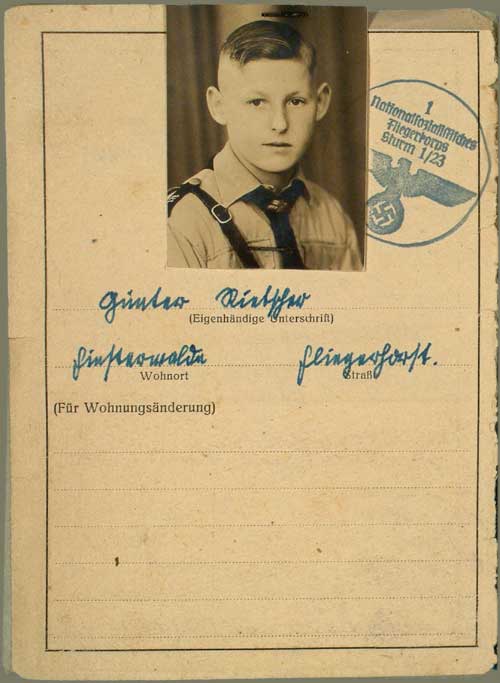 1
Nationalsozialistisches
Fliegerkorps
Sturm 1/23
Günter Rietscher
(Eigenhändige Unterschrift)
Finsterwalde Fliegerhorst.
Wohnort Straße
(Für Wohnungsänderung)